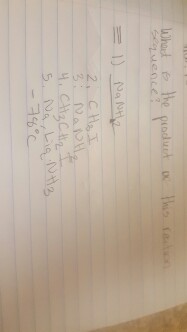 What is the product of this reaction
sequence?
≡ 1) NaNH2
2. CH3I
3. NaNH2
4. CH3CH2I
5. Na, Liq. NH3
-78°C